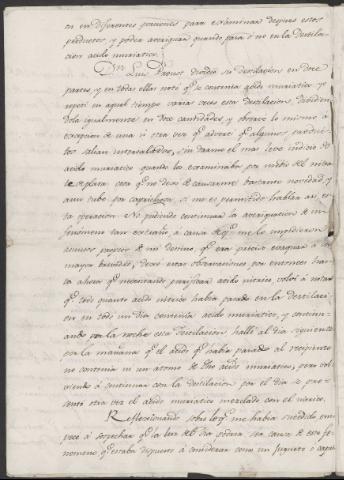 en en diferentes porciones para examinar despues estos
productos, y poder averiguar quando para ó no en la destila-
cion acido muriatico.
Dn. Luis Proust dividió su destilacion en doce
partes, y en todas ellas notó qe. se contenia acido muriatico, y
repetí en aquel tiempo varias veces esta destilacion, dividien-
dola igualmente en doce cantidades, y observé lo mismo á
excepcion de una ú otra vez qe. advertí qe. algunos produc-
tos salian intercalados, sin darme el mas leve indicio de
acido muriatico quando los examinaba por medio del nitra-
to de plata, cosa qe. no dexó de causarme bastante novedad, y
aun tube por caprichosa, si me es permitido hablar asi, es-
ta operacion. No pudiendo continuar la averiguacion de un
fenomeno tan extraño á causa de qe. me lo impidieron
asuntos propios de mi destino, qe. era preciso evaquar á con
mayor brevedad, dexé estas observaciones por entonces has-
ta ahora qe. necesitando purificar acido nitrico volví á notar
qe. todo quanto acido nitrico habia pasado en la destilaci-
on en todo un dia contenia acido muriatico, y continu-
ando por la noche esta destilacion hallé al dia siguiente
por la mañana qe. el acido qe. habia pasado al recipiente
no contenia ni un atomo de dho. acido muriatico, pero vol-
viendo á continuar con la destilacion por el dia se pre-
sentó otra vez el acido muriatico mezclado con el nitrico.
Reflexionando sobre lo qe. me habia sucedido, em-
pecé á sospechar qe. la luz del dia podria ser causa de este fe-
nomeno qe. estaba dispuesto á considerar como un juguete o capri-